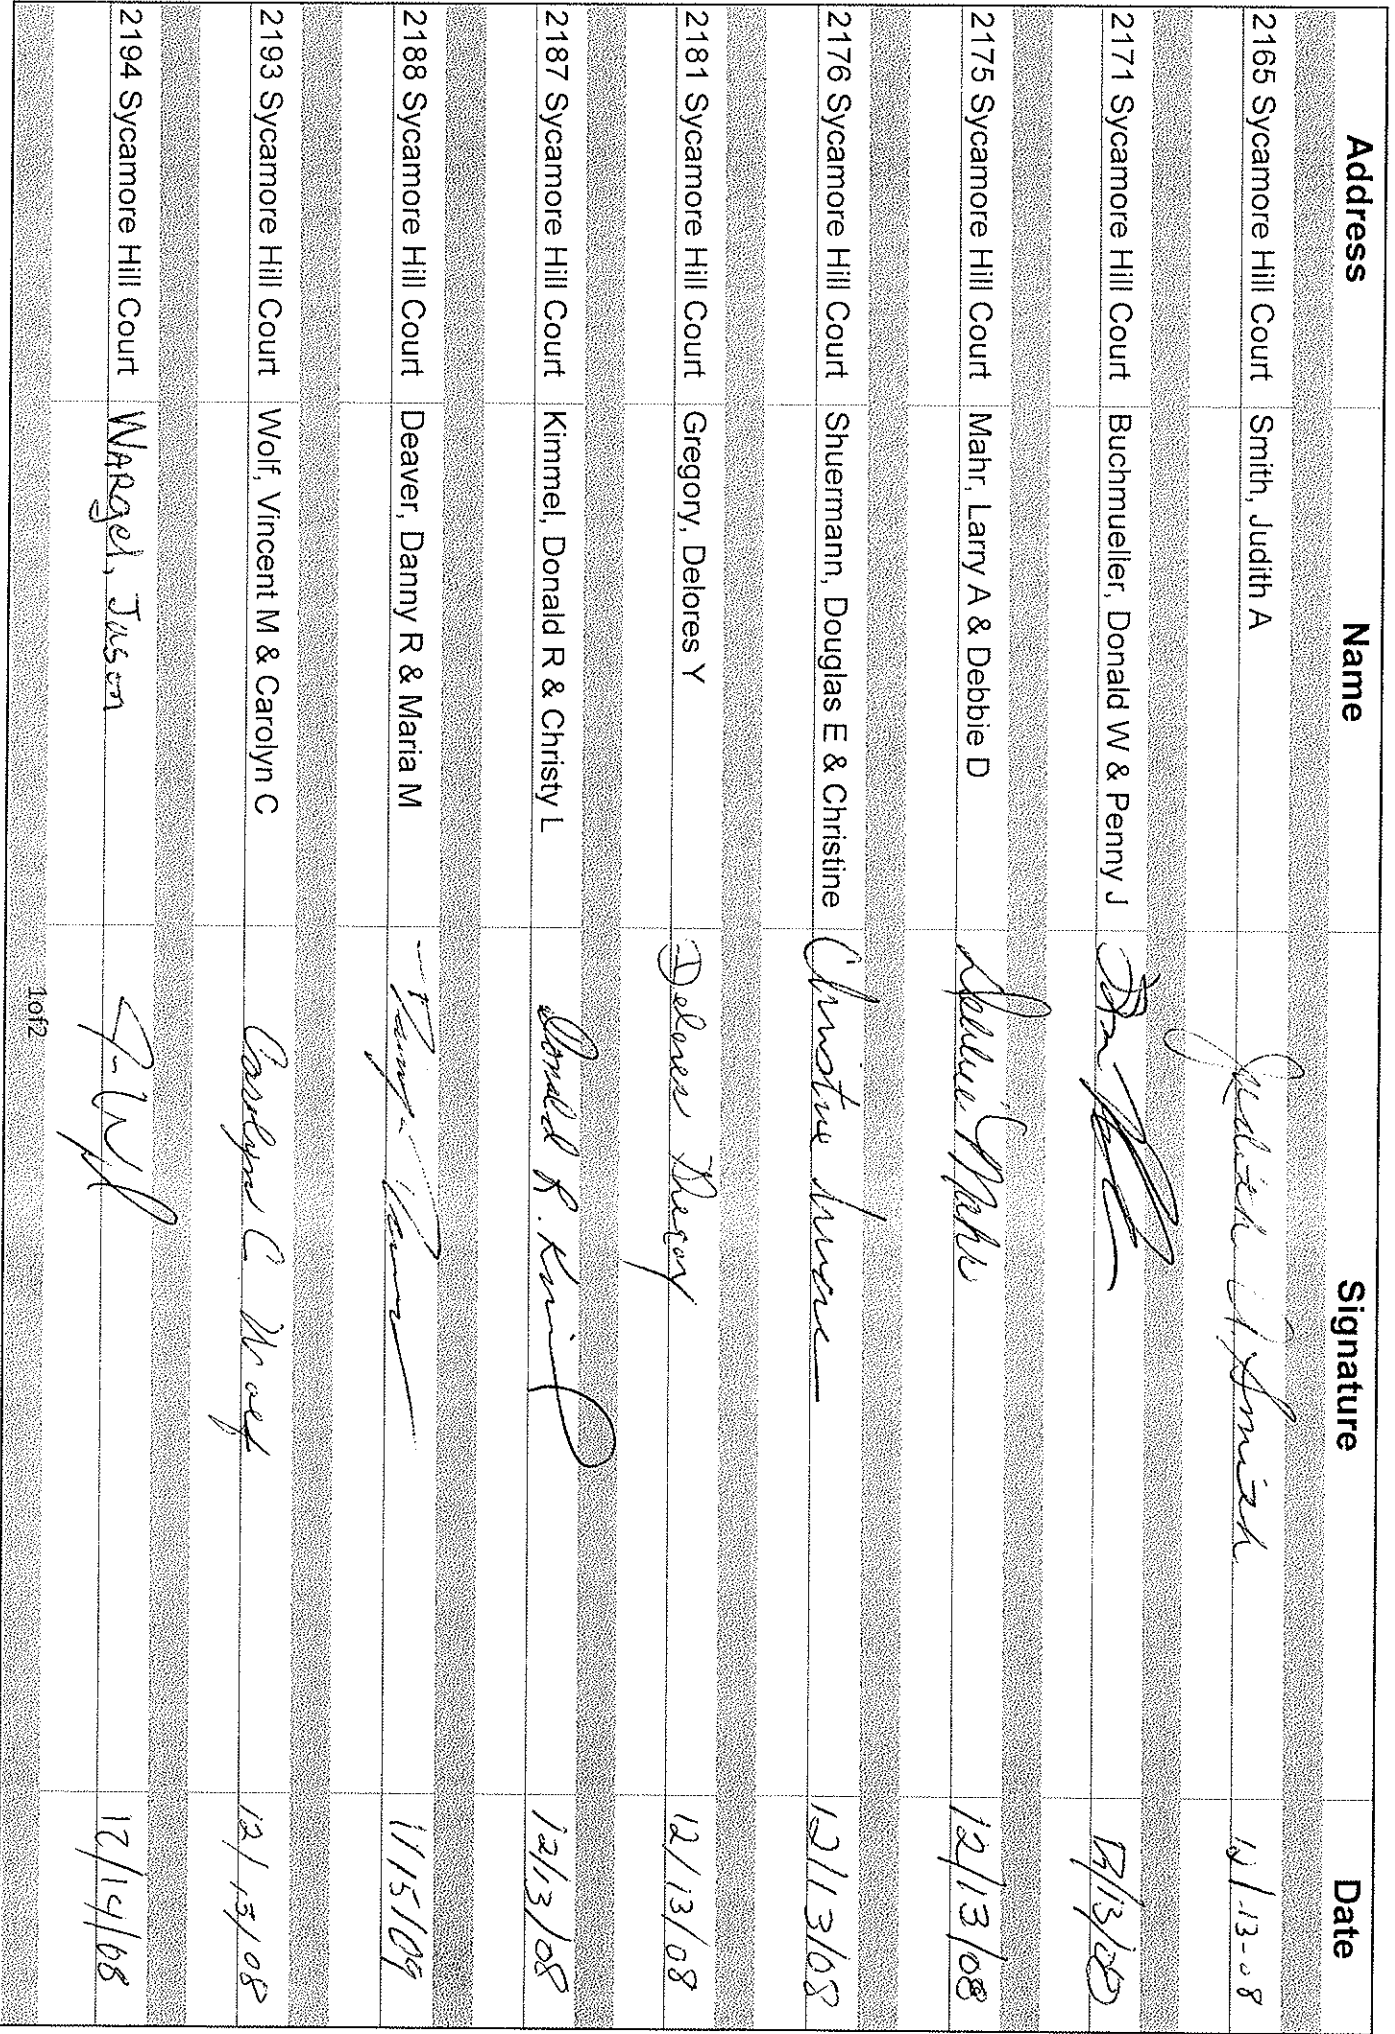 Address Name Signature Date
2165 Sycamore Hill Court Smith, Judith A Judith A Smith 12/-13-08
2171 Sycamore Hill Court Buchmueller, Donald W & Penny J Don 12/13/08
2175 Sycamore Hill Court Mahr, Larry A & Debbie D Debbie Mahr 12/13/08
2176 Sycamore Hill Court Shuermann, Douglas E & Christine Christine 12/13/08
2181 Sycamore Hill Court Gregory, Delores Y Delores Gregory 12/13/08
2187 Sycamore Hill Court Kimmel, Donald R & Christy L Donald R. 12/13/08
2188 Sycamore Hill Court Deaver, Danny R & Maria M 1/15/09
2193 Sycamore Hill Court Wolf, Vincent M & Carolyn C Carolyn C Wolf 12/13/08
2194 Sycamore Hill Court WARgel, Jason 12/14/08
1of2